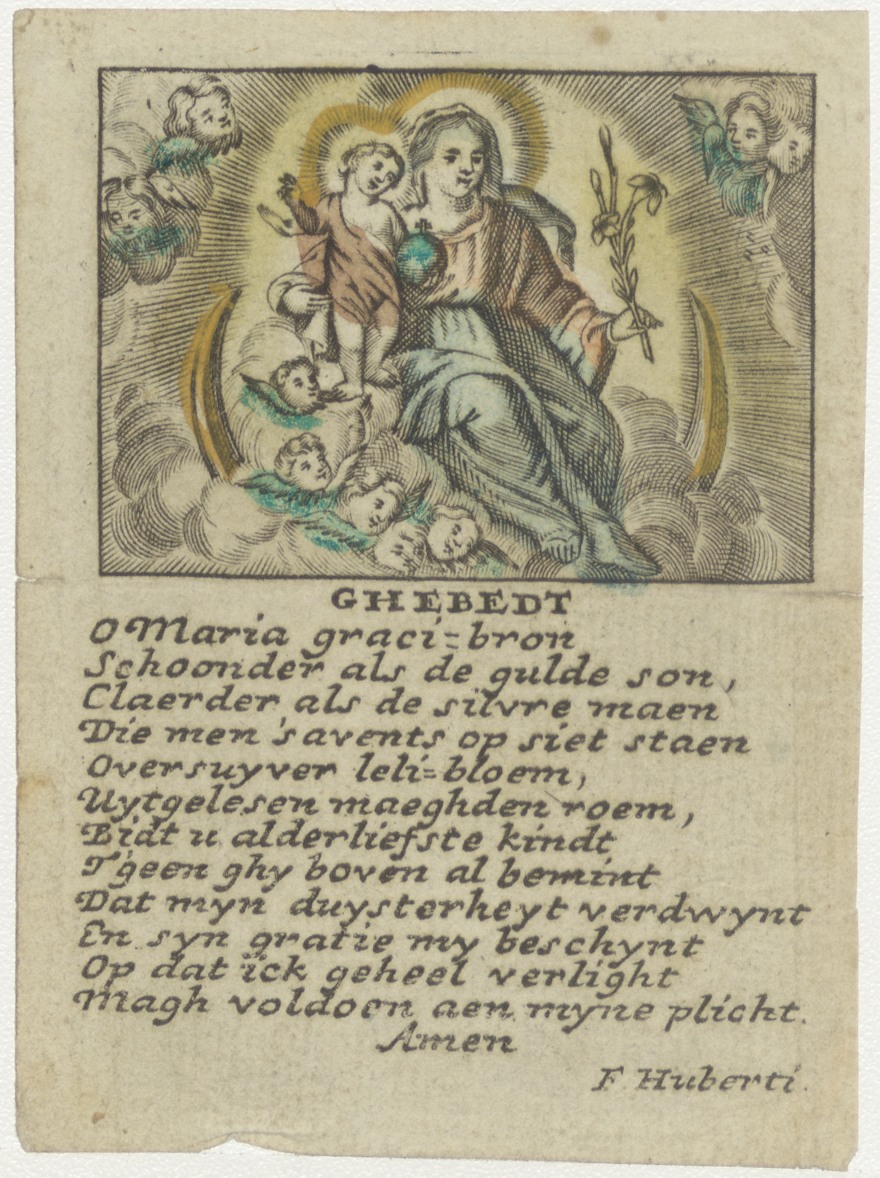 GHEBEDT
O Maria graci=bron
Schoonder als de gulde son,
Claerder als de silvre maen
Die men 's avents op siet staen
Oversuyver leli=bloem,
Uytgelesen maeghden roem,
Bidt u alderliefste kindt
T'geen ghy boven al bemint
Dat myn duysterheyt verdwynt
En syn gratie my beschynt
Op dat ick geheel verlight
Magh voldoen aen myne plicht.
Amen
F Huberti.